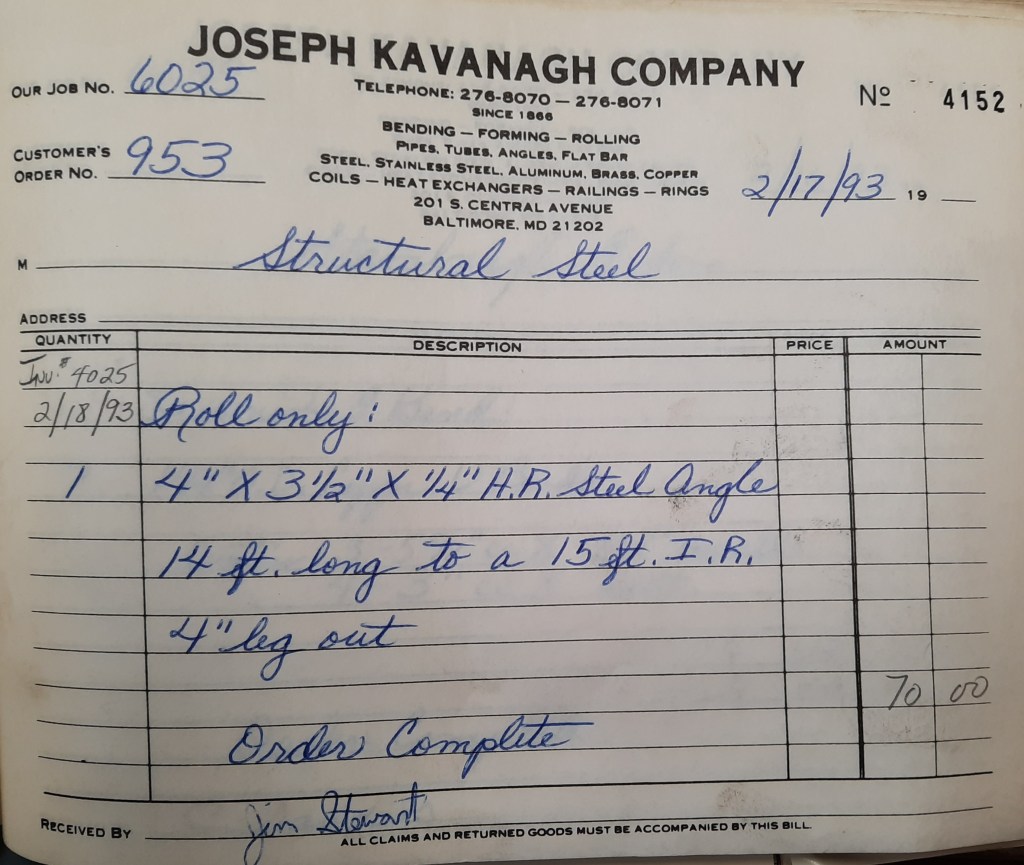 JOSEPH KAVANAGH COMPANY
OUR JOB NO. 6025
TELEPHONE: 276-8070 — 276-8071
Nº 4152
SINCE 1866
BENDING — FORMING — ROLLING
PIPES, TUBES, ANGLES, FLAT BAR
CUSTOMER'S
ORDER NO. 953
STEEL, STAINLESS STEEL, ALUMINUM, BRASS, COPPER
COILS — HEAT EXCHANGERS — RAILINGS — RINGS
2/17/93 19
201 S. CENTRAL AVENUE
BALTIMORE, MD 21202
M Structural Steel
ADDRESS
QUANTITY DESCRIPTION PRICE AMOUNT
Inv. # 4025
2/18/93 Roll only:
1 4" X 3 1/2" X 1/4" H.R. Steel Angle
14 ft. long to a 15 ft. I.R.
4" leg out
70 00
Order Complete
RECEIVED BY Jim Stewart
ALL CLAIMS AND RETURNED GOODS MUST BE ACCOMPANIED BY THIS BILL.